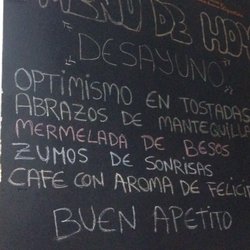 MENU DE HOY
"DESAYUNO"
OPTIMISMO EN TOSTADAS
ABRAZOS DE MANTEQUILL
MERMELADA DE BESOS
ZUMOS DE SONRISAS
CAFE CON AROMA DE FELICI
BUEN APETITO